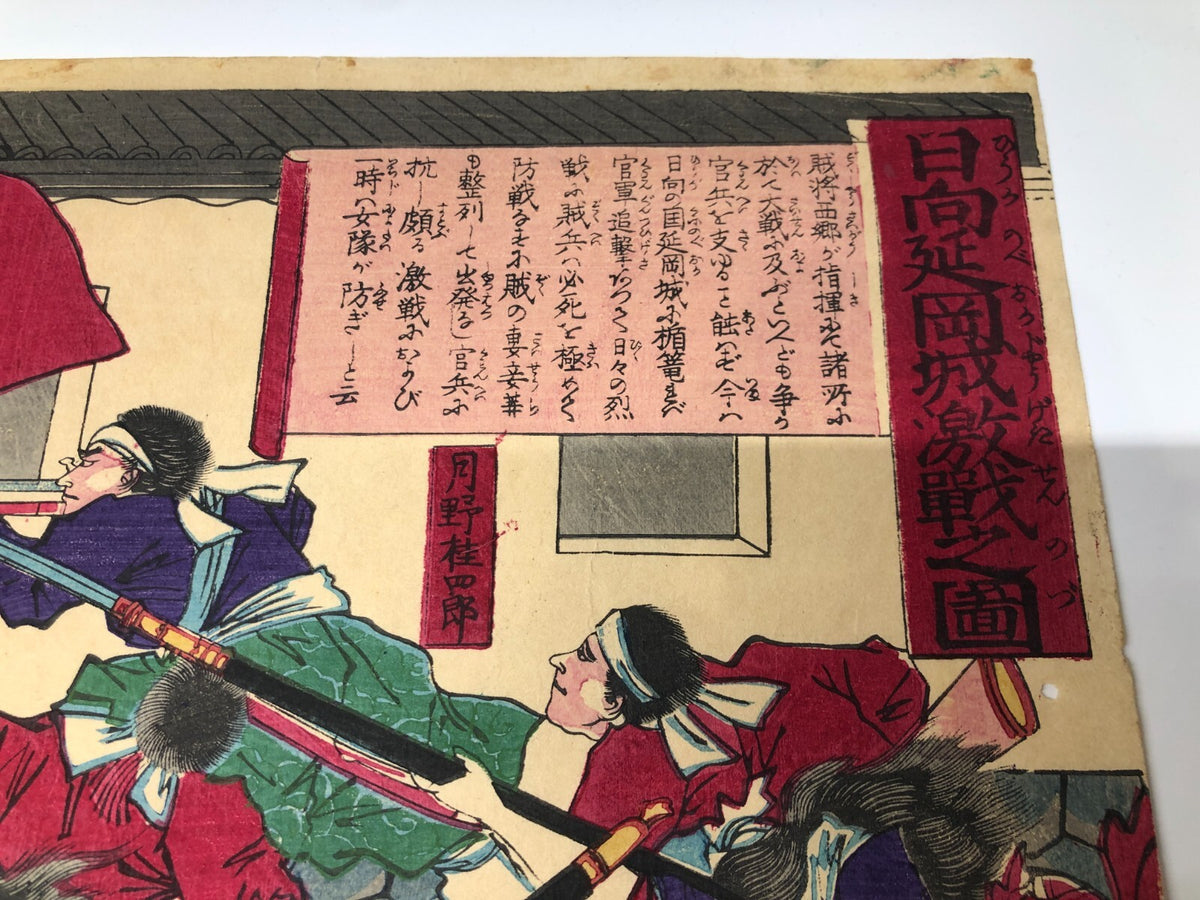 日向延岡城激戰之圖
ひうがのべおかじやうげきせんのづ
賊将西郷が指揮にて諸所に
於て大戦に及ぶといへども争か
官兵を支ゆること能はず今は
日向の国延岡城に楯篭れば
官軍追撃なつく日々の烈
戦に賊兵ハ必死を極めて
防戦なすに賊の妻妾等
も整列して出発なし官兵に
抗し頗る激戦におよび
一時ハ女隊が防ぎしと云
月野桂四郎